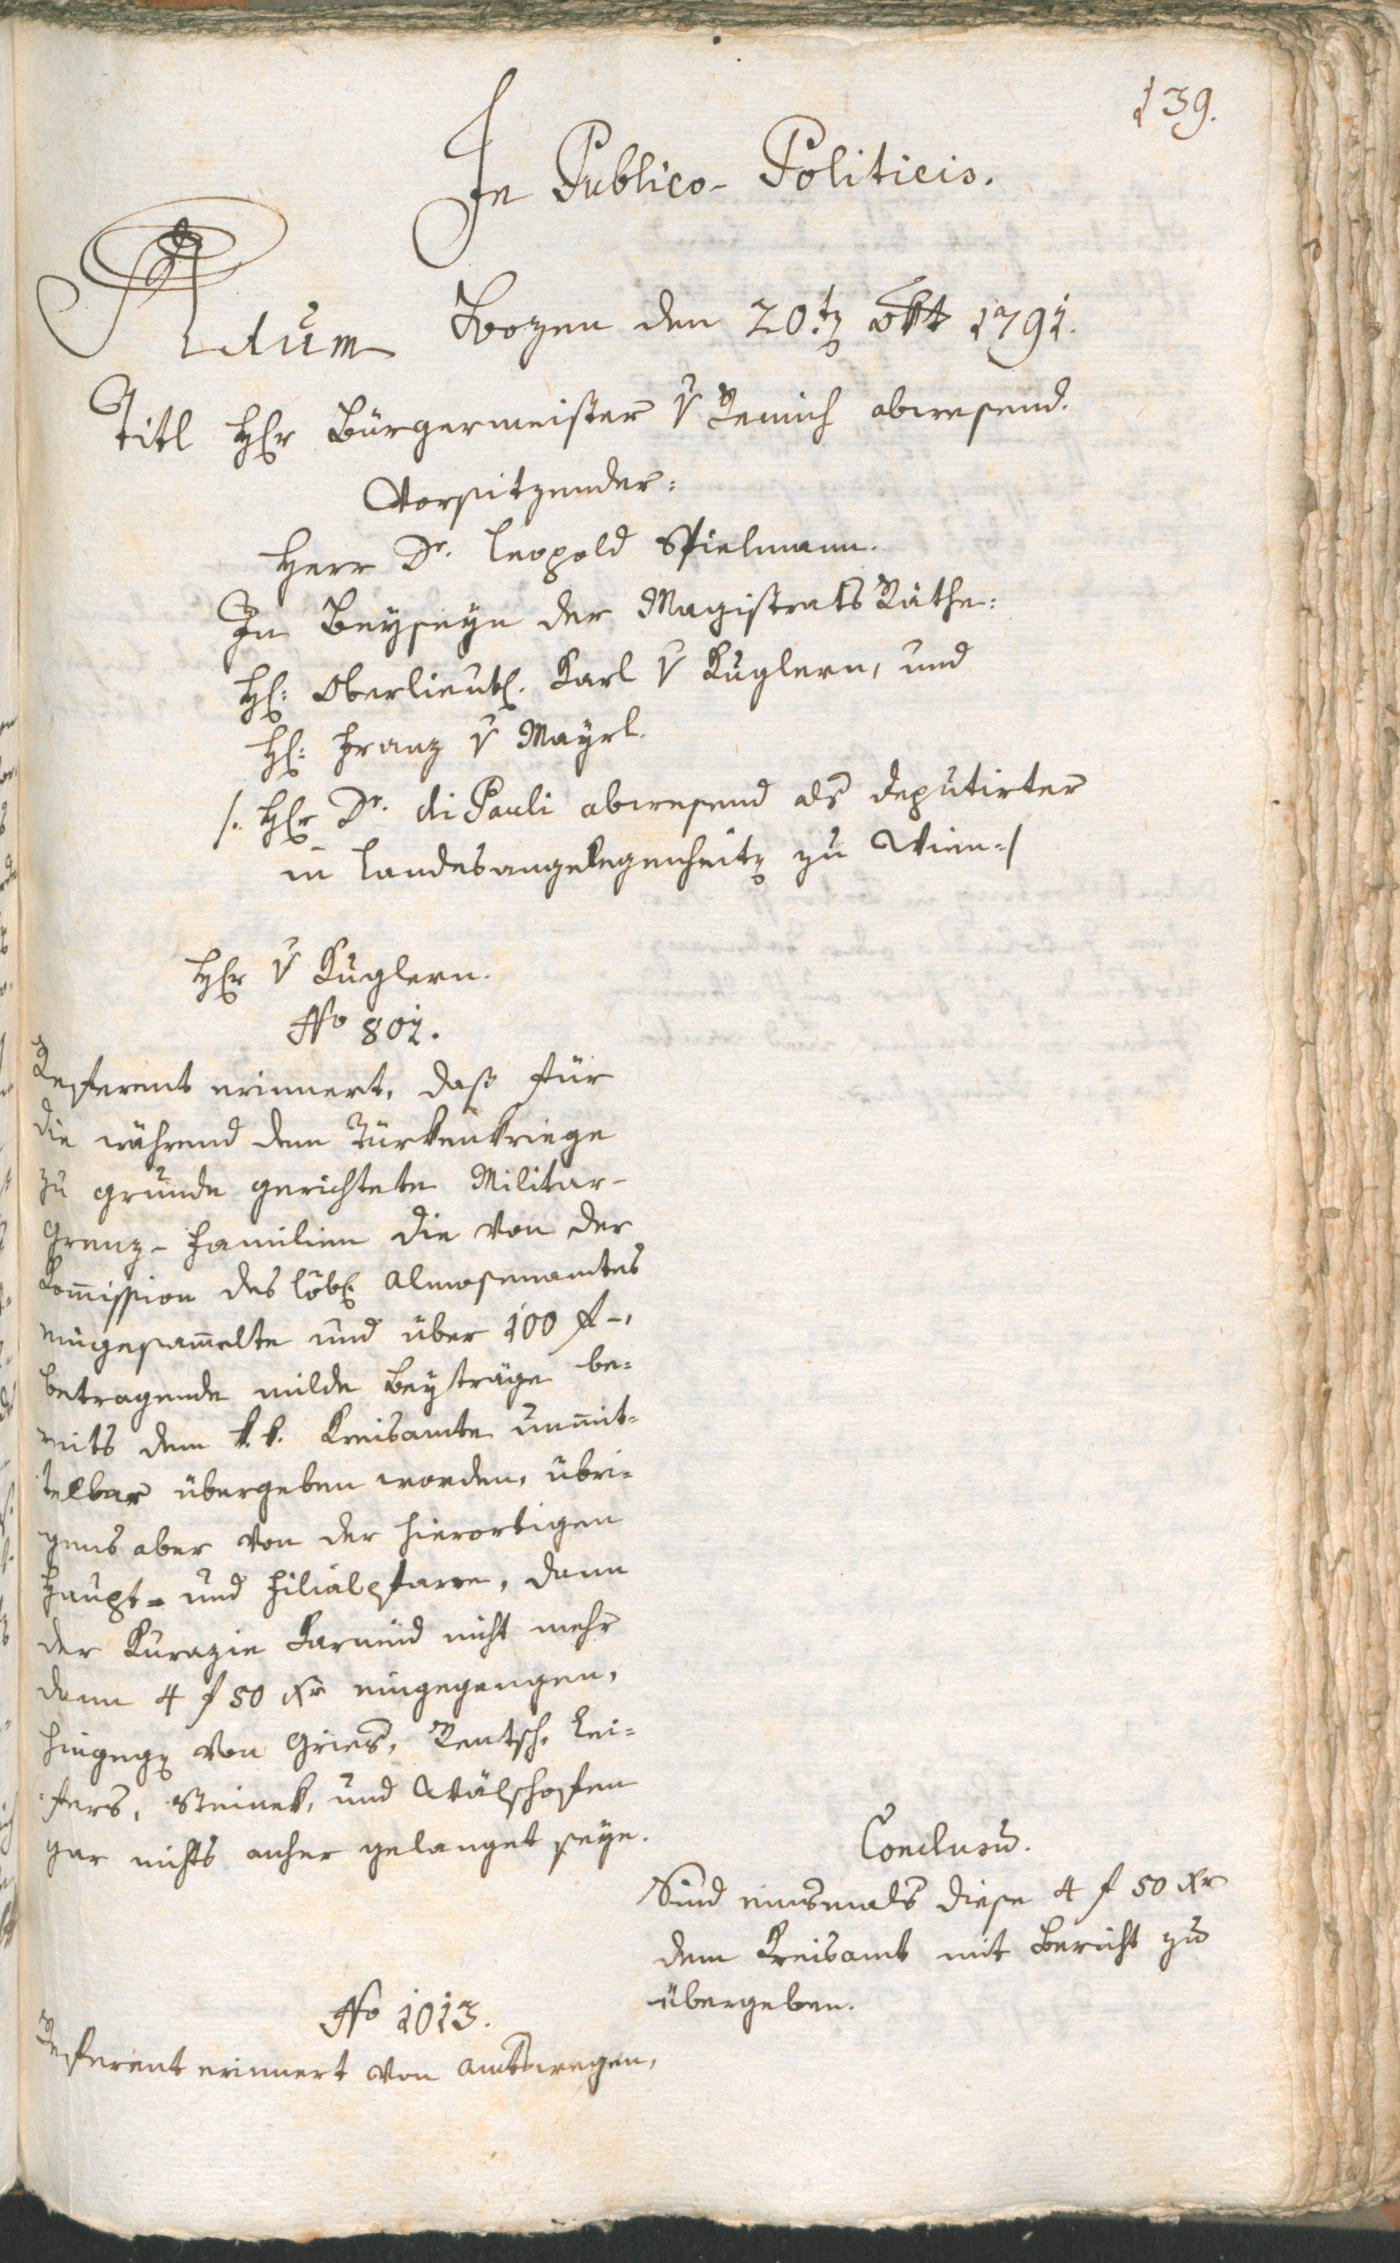 139.
In Publico-Politicis.
Actum Bozen den 20.t Okt 1791.
Titl H Bürgermeister v Remich abwesend.
Vorsitzender:
Herr Dr. Leopold Spielmann.
In Beyseyn der Magistrats Räthe:
H: Oberlieut. Karl v Kuglern, und
H: Franz v Mayrl.
/: H Dr. di Pauli abwesend als deputirter
in Landesangelegenheit zu Wien :/
H v Kuglern.
No 801.
Referent erinnert, daß für
die während dem Türkenkriege
zu grunde gerichtete Militar-
Grenz-Familien die von der
Kom̅ission des löb Almosenamtes
eingesam̅elte und über 100 f -,
betragende milde Beyträge be-
reits dem k. k. Kreisamte unmit-
telbar übergeben worden, übri-
gens aber von der hierortigen
Haupt- und Filialpfarre, dann
der Kurazie Karneid nicht mehr
dann 4 f 50 xr eingegangen,
hingegen von Gries, Rentsch, Lei-
fers, Steinek, und Wälschofen
gar nichts anher gelanget seye.
Conclusu̅.
Sind einsmals diese 4 f 50 xr
dem Kreisamt mit Bericht zu
übergeben.
No 1013.
Referent erinnert von amtswegen,